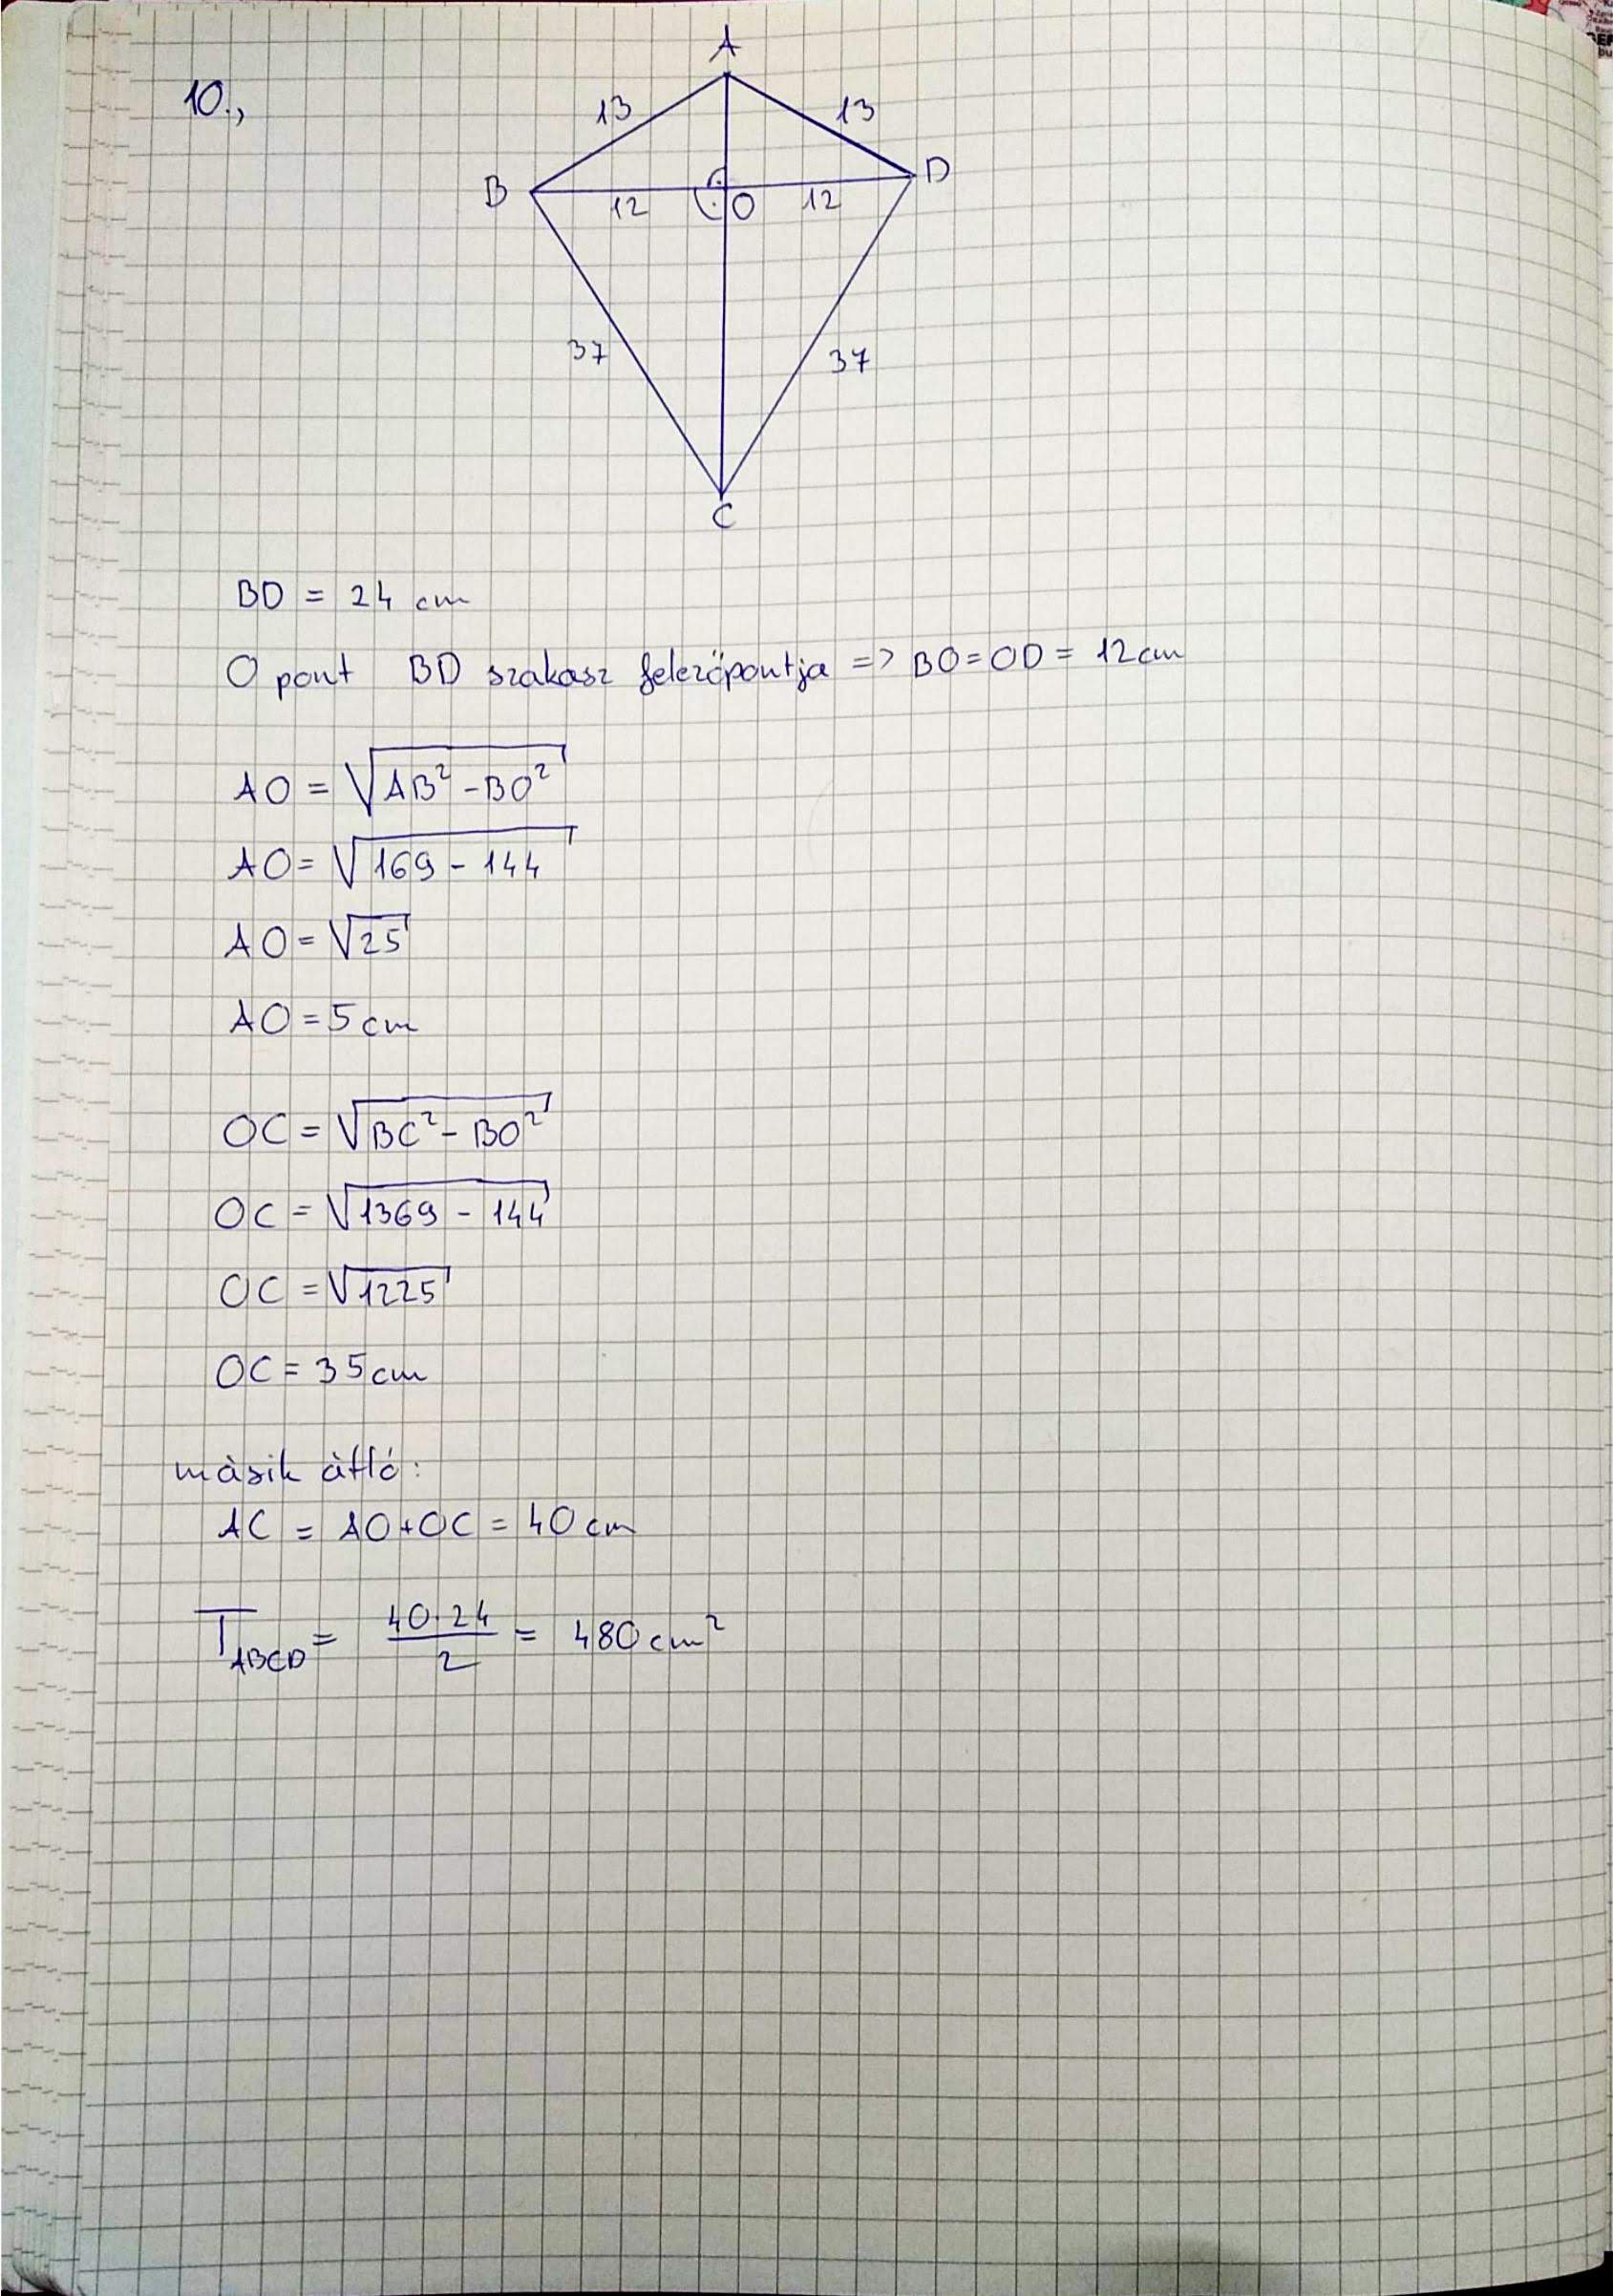 10.,
A
13
13
B
D
12
O
12
37
37
C
BD = 24 cm
O pont BD szakasz felezőpontja => BO=OD= 12cm
AO = √AB² -BO²
AO= √169 - 144
AO= √25
AO =5 cm
OC = √BC² - BO²
OC = √1369 - 144
OC = √1225
OC = 35cm
másik átló:
AC = AO+OC = 40 cm
T_ABCD = 40·24/2 = 480 cm²